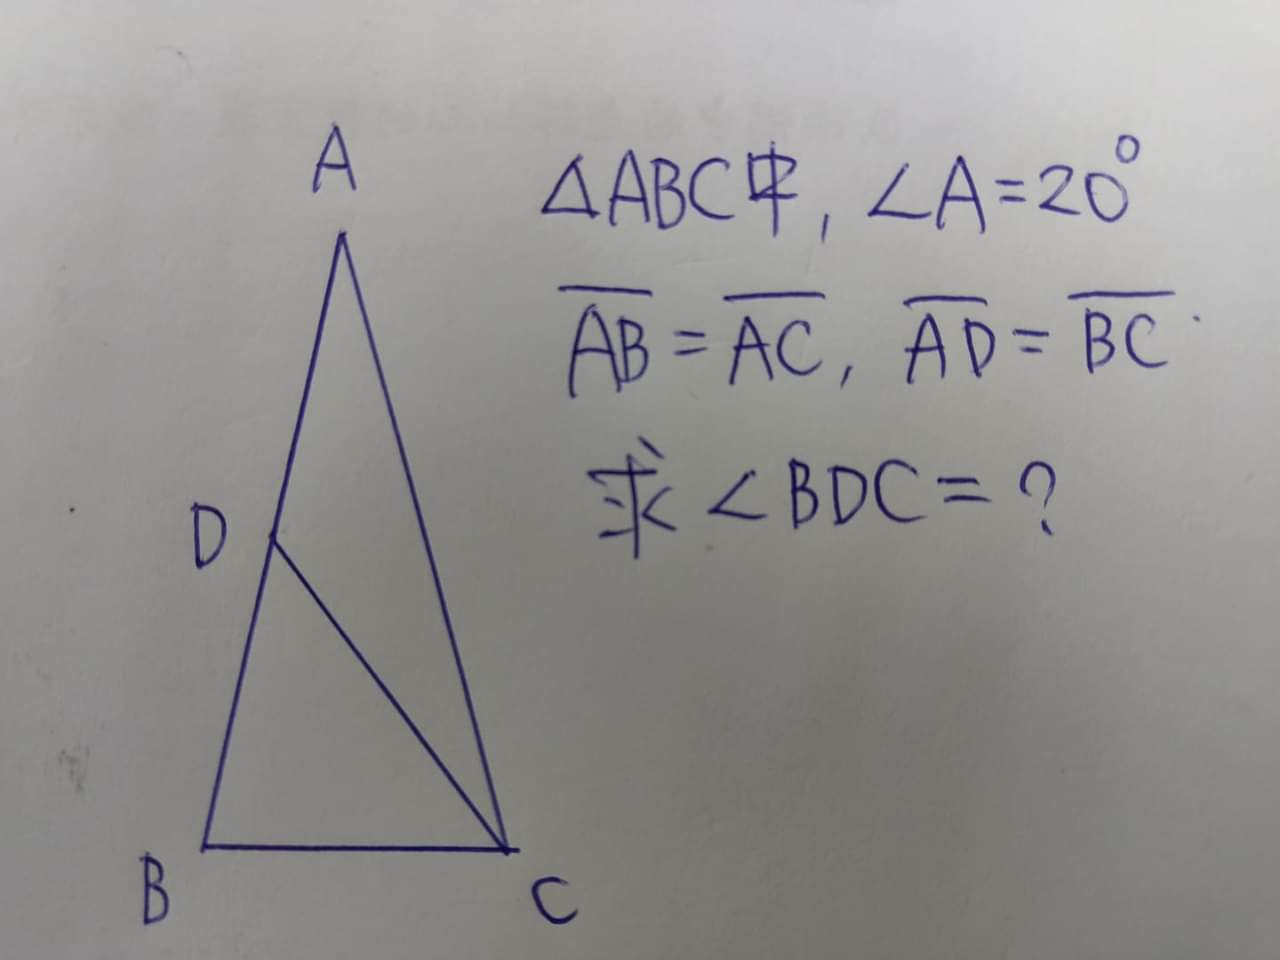 A
△ABC中, ∠A=20°
AB=AC, AD=BC
D
求∠BDC=?
B
C